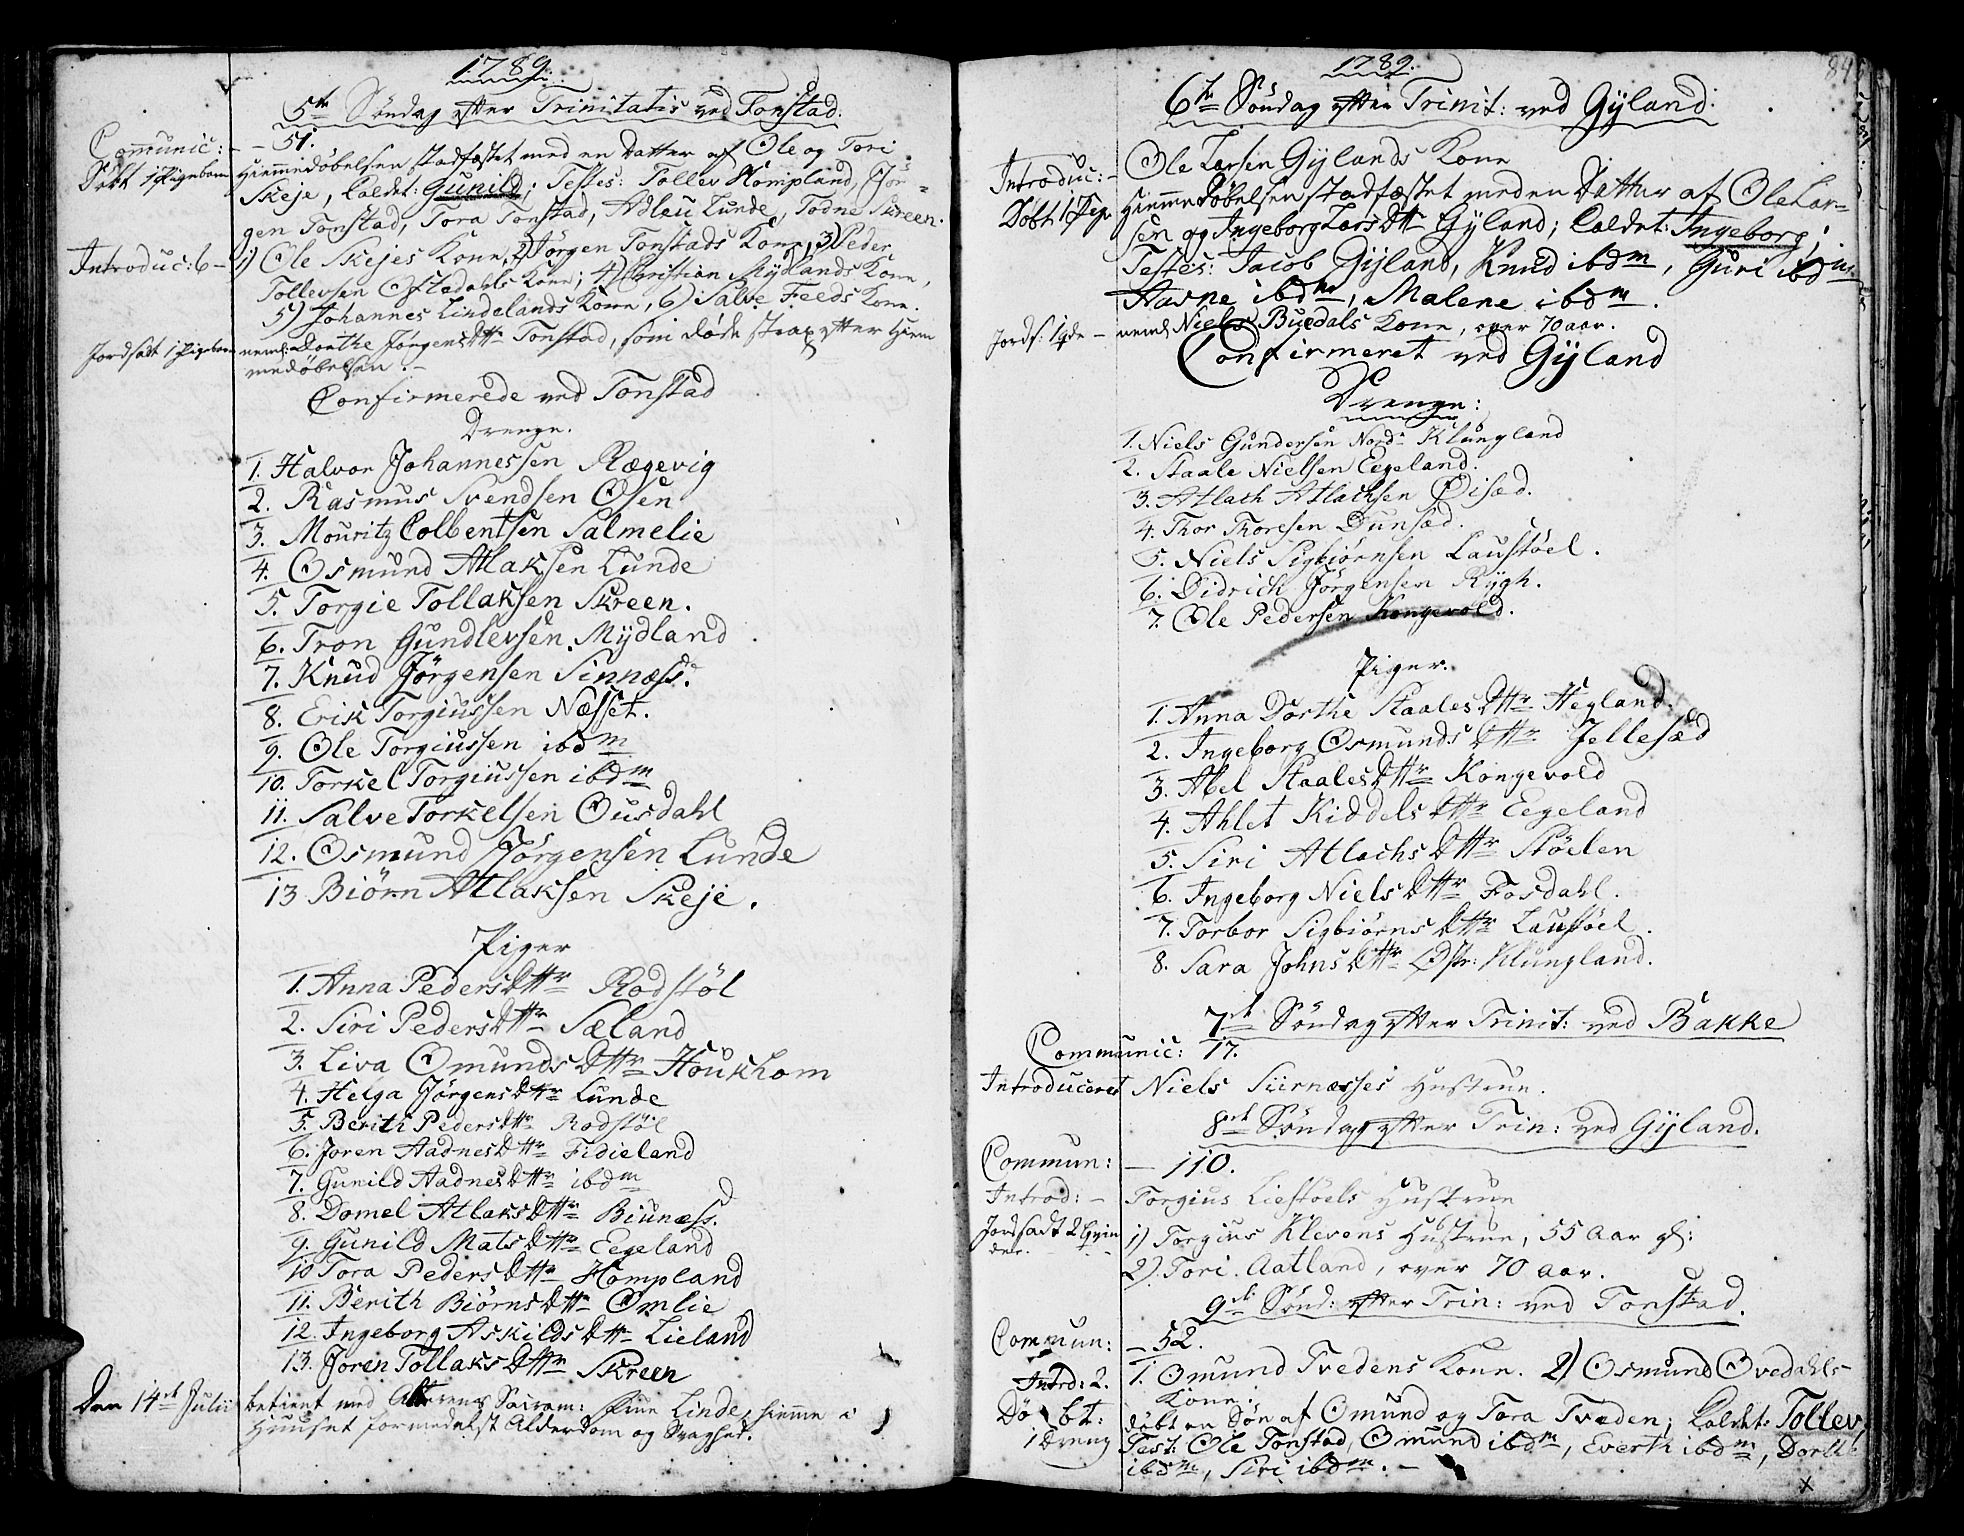 1789.
5te Søndag efter Trinitatis ved Tonstad:
Communic: - - 51.
Døbt 1 Pigebarn Hiemmedøbelsen stadfæstet med en Datter af Ole og Tori
Skeje, kaldet: Gunild; Testes: Tollev Hompland, Jør-
gen Tonstad, Tora Tonstad, Adleu Lunde, Todne Skreen.
Introduc: 6 - 1) Ole Skejes Kone, 2) Jørgen Tonstads Kone, 3) Peder
Tollevsen Ofstedahls Kone; 4) Christian Mydlands Kone,
5) Johannes Lindelands Kone, 6) Salve Feeds Kone
Jordsatt 1 Pigebarn neml: Dorthe JørgensDttr Tonstad, som døde strax efter Hiem
medøbelsen. -
Confirmerede ved Tonstad
Drenge.
1. Halvor Johannessen Røgevig
2. Rasmus Svendsen Osen
3. Mouritz Colbentsen Salmelie
4. Osmund Atlaksen Lunde
5. Torgie Tollaksen Skreen.
6. Tron Gundlevsen Mydland
7. Knud Jörgensen Sinnæss.
8. Erik Torgiussen Næsset.
9. Ole Torgiussen ibdm
10. Torkel Torgiussen ibdm
11. Salve Torkelsen Ousdahl
12. Osmund Jörgensen Lunde
13 Biörn Atlaksen Skeje.
Piger
1. Anna PedersDttr Rodstöl
2. Siri PedersDttr Sæland
3. Liva OmundsDttr Houkhom
4. Helga JørgensDttr Lunde
5. Berith PedersDttr Rodstöl
6. Joren AadnesDttr Fidieland
7. Gunild AadnesDttr ibdm
8. Domel AtlaksDttr Biunæss.
9. Gunild MatsDttr Eegeland
10 Tora PedersDttr Hompland
11. Berith BiörnsDttr Omlie
12. Ingeborg AskildsDttr Lieland
13. Joren TollaksDttr Skreen
Den 14de Julii betient med Alterens Sacram: Liene i
Huuset formedelst Alderdom og Svaghed.
1789.
84
6te Søndag efter Trinit: ved Gyland.
Introduc: - Ole Larsen Gylands Kone
Døbt 1 Pige Hiemmedøbelsen stadfæstet med en Datter af Ole Lar-
sen og Ingeborg LarsDttr Gyland; kaldet: Ingeborg;
Testes: Jacob Gyland, Knud ibdm, Guri ibdm
Aasne ibdm, Malene ibdm.
Jords: 1 qde - neml Niels Buedals Kone, over 70 aar.
Confirmeret ved Gyland
Drenge:
1. Niels Gundersen Nord: Klungland
2. Staale Nielsen Eegeland.
3. Atlach Atlachsen Öisæd.
4. Thor Thoresen Dunsæd.
5. Niels Sigbiörnsen Laustöel.
6. Didrich Jörgensen Rygh.
7. Ole Pedersen Kongevold.
Piger.
1. Anna Dorthe StaalesDttr Hegland.
2. Ingeborg OsmundsDttr Jellesæd
3. Abel StaalesDttr Kongevold
4. Ahlet KiddelsDttr Eegeland
5. Siri AtlachsDttr Stöelen
6. Ingeborg NielsDttr Fosdahl.
7. Torbor SigbiörnsDttr Laustöel.
8. Sara JohnsDttr Østr: Klungland.
7de Søndag efter Trinit: ved Bakke
Communic: 17.
Introduceret Niels Siirnæsses Hustrue.
8de Søndag efter Trin: ved Gyland.
Commun: - 110.
Introd: - Torgius Liestöels Hustrue
Jordsadt 2 Qvin 1) Torgius Klevens Hustrue, 55 aar gl:
der. 2) Tori Aatland, over 70 aar.
9de Sønd: efter Trin: ved Tonstad.
Commun: - 52.
Introd: 2. 1. Omund Tvedens Kone. 2) Osmund Ovedahls
Kone;
Døbt: døbt en Søn af Omund og Tora Tveden; kaldet: Tollev
1 Dreng Test: Ole Tonstad, Omund ibdm, Everth ibdm, Dorthe
ibdm, Siri ibdm. -
x